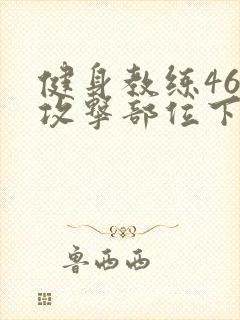 健身教练46
攻撃部位下
鲁西西